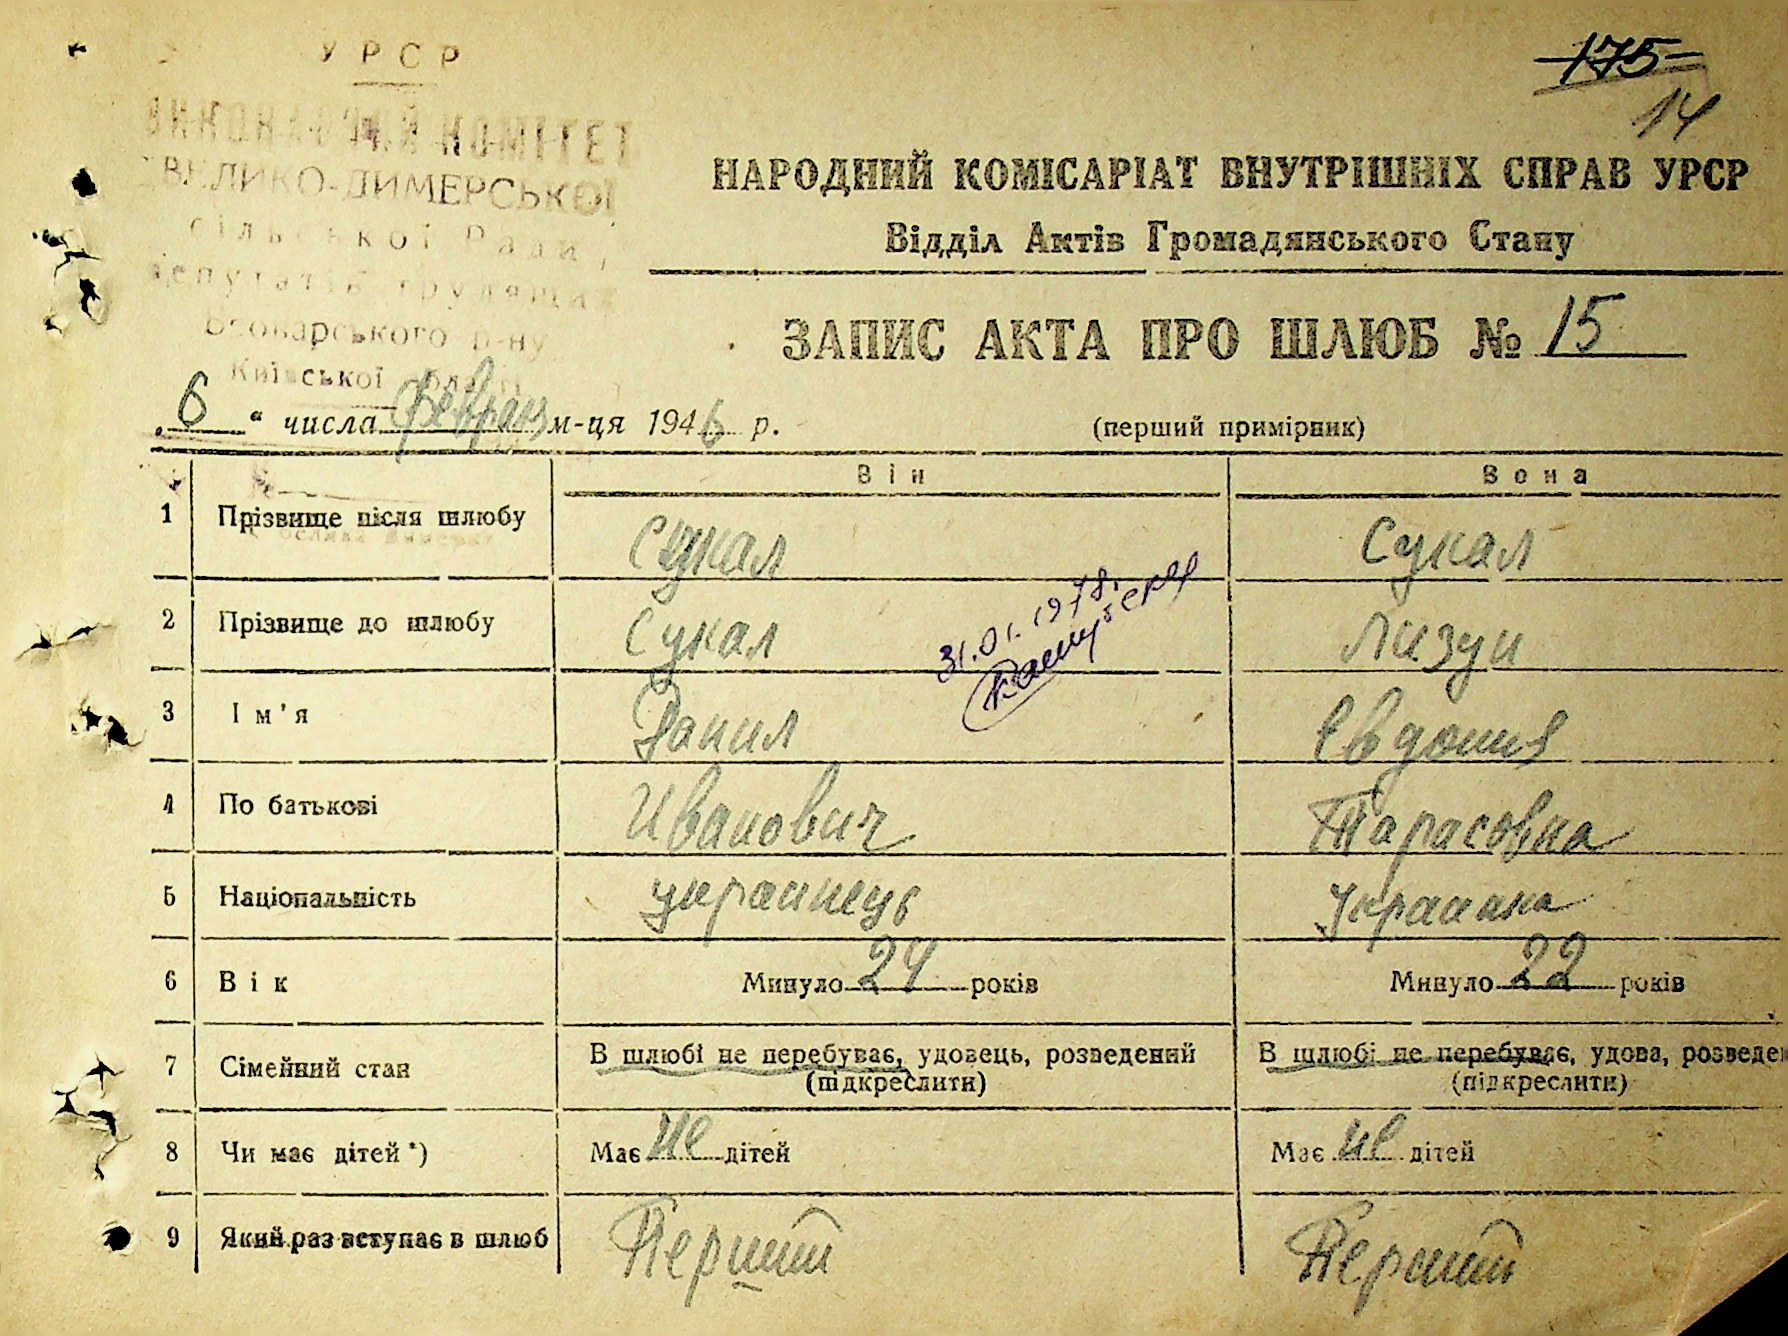 УРСР
ВИКОНАВЧИЙ КОМІТЕТ
ВЕЛИКО-ДИМЕРСЬКОЇ
сільської Ради
депутатів трудящих
Броварського р-ну
Київської
175
14
НАРОДНИЙ КОМІСАРІАТ ВНУТРІШНІХ СПРАВ УРСР
Відділ Актів Громадянського Стану
ЗАПИС АКТА ПРО ШЛЮБ № 15
„6“ числа февраля м-ця 1946 р.
(перший примірник)
Він Вона
1 Прізвище після шлюбу Сукал Сукал
2 Прізвище до шлюбу Сукал Лизун
31.01.1978.
3 Ім'я Данил Евдокия
4 По батькові Иванович Тарасовна
5 Національність украинець Украинка
6 Вік Минуло 24 років Минуло 22 років
7 Сімейний стан В шлюбі не перебуває, удовець, розведений В шлюбі не перебуває, удова, розведе
(підкреслити) (підкреслити)
8 Чи має дітей *) Має не дітей Має не дітей
9 Який раз вступає в шлюб Перший Перший